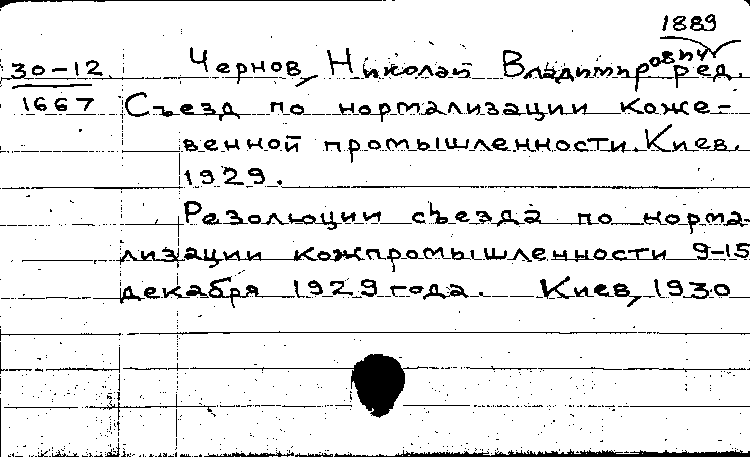 1889
30-12 Чернов, Николай Владимирович ред.
1667 Съезд по нормализации коже-
венной промышленности. Киев.
1929.
Резолюции съезда по норма-
лизации кожпромышленности 9-15
декабря 1929 года. Киев, 1930